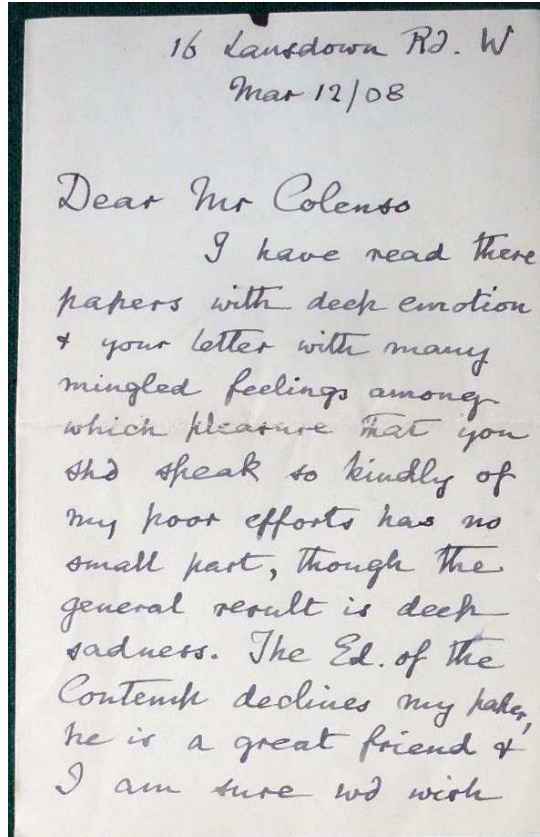 16 Lansdown Rd. W
Mar 12/08
Dear Mr Colenso
I have read these
papers with deep emotion
& your letter with many
mingled feelings among
which pleasure that you
shd speak so kindly of
my poor efforts has no
small part, though the
general result is deep
sadness. The Ed. of the
Contemp declines my paper,
he is a great friend &
I am sure wd wish